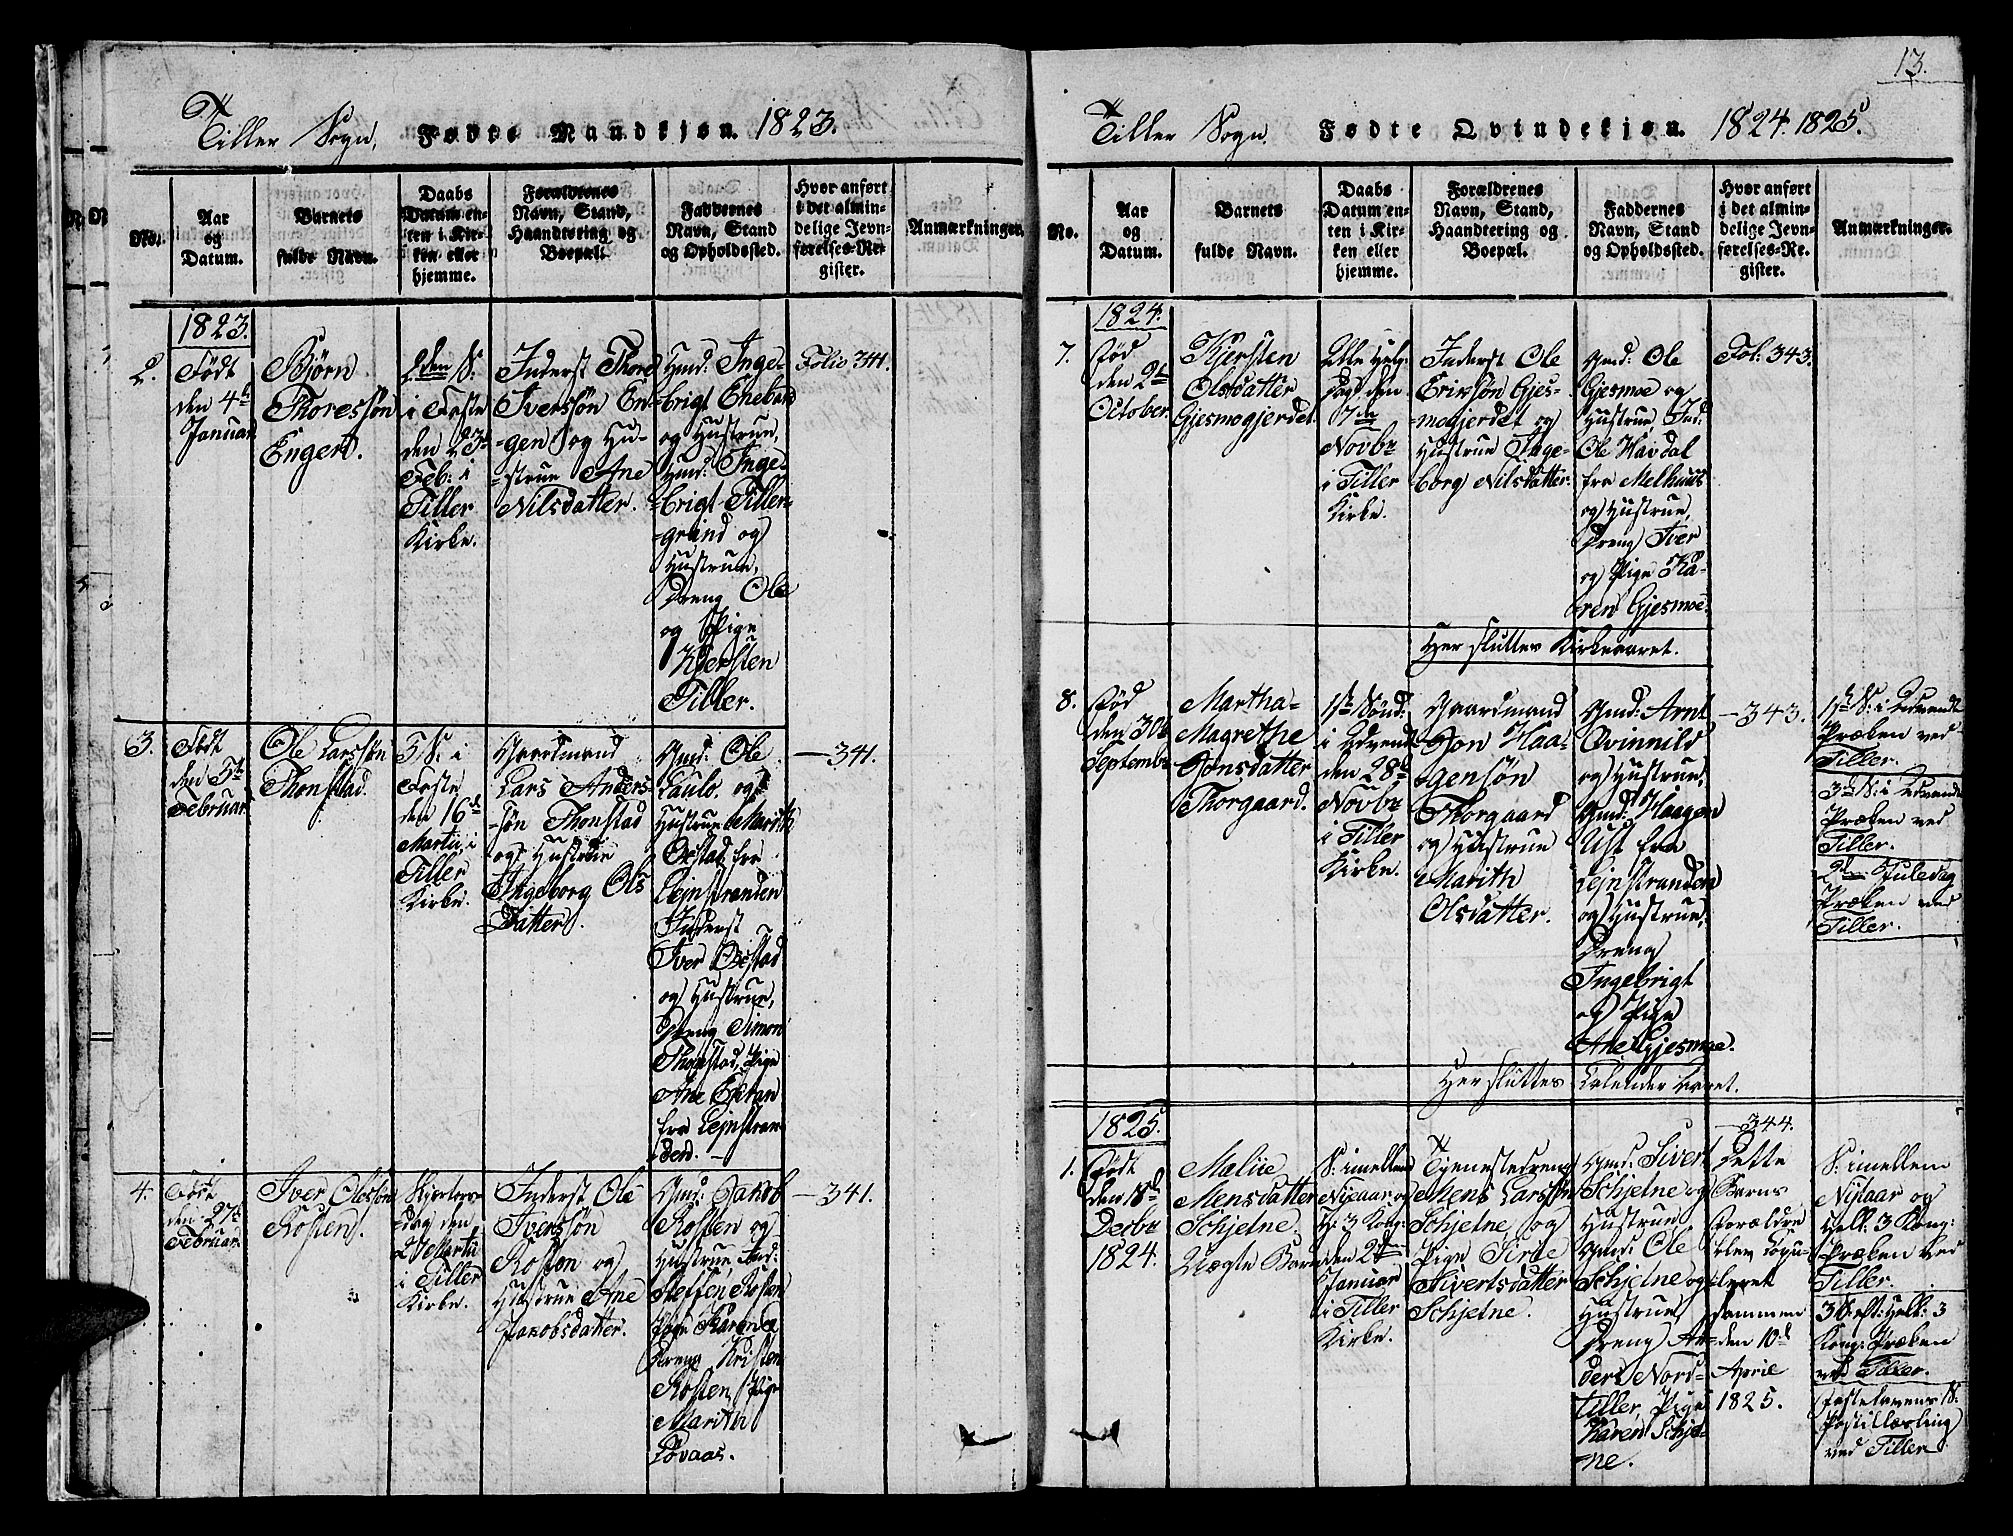 13.
Tiller Sogn, Fødte Mandkjøn. 1823.
No.
Aar
og
Datum.
Barnets
fulde Navn.
Daabs
Datum en-
ten i Kir-
ken eller
hjemme.
Forældrenes
Navn, Stand,
Haandtering og
Boepæl.
Faddernes
Navn, Stand
og Opholdssted.
Hvor anført
i det almin-
delige Jevn-
førelses-Re-
gister.
Anmærkninger.
1823.
2.
Født
den 4de
Januar
Bjørn
Thoressøn
Engen.
2den S:
i Faste
den 23de
Feb: i
Tiller
Kirke.
Inderst Thore
Iverssøn En-
gen og Hu-
strue Ane
Nilsdatter.
Gmd: Inge-
brigt Enebak
og Hustrue,
Gmd: Inge-
brigt Tiller-
grind og
Hustrue,
Dreng Ole
og Pige
Kjersten
Tiller.
Folio 341.
3.
Født
den 5te
Februar
Ole Larssøn
Thonstad.
5 S: i
Faste
den 16de
Martii i
Tiller
Kirke.
Gaardmand
Lars Anders-
søn Thonstad
og Hustrue
Ingeborg Ols
Datter.
Gmd: Ole
og
Hustrue Marith
Oxstad fra
Lejnstranden
Inderst
Iver Oxstad
og Hustrue,
Dreng Simon
Thonstad, Pige
Ane
fra Lejnstran
den.
— 341.
4.
Født
den 27de
Februar.
Iver Olssøn
Rosten.
Skjertors-
dag den
27 Martii
i Tiller
Kirke.
Inderst Ole
Iverssøn
Rosten og
Hustrue Ane
Jakobsdatter.
Gmd: Jakob
Rosten og
Hustrue, Ind:
Steffen Rosten
Pige Karen
Dreng Kristen
Rosten, Pige
Marith
Løvaas.
— 341.
Tiller Sogn. Fødte Qvindekjøn. 1824. 1825.
No.
Aar
og
Datum.
Barnets
fulde Navn.
Daabs
Datum en-
ten i Kir-
ken eller
hjemme.
Forældrenes
Navn, Stand,
Haandtering og
Boepæl.
Faddernes
Navn, Stand
og Opholdssted.
Hvor anført
i det almin-
delige Jevn-
førelses-Re-
gister.
Anmærkninger.
1824.
7.
Fød
den 2de
October.
Kjersten
Olsdatter
Gjesmogjerdet.
Alle Helg:
Dag den
7de
Novbr
i Tiller
Kirke.
Inderst Ole
Erikssøn Gjes-
mogjerdet og
Hustrue Inge-
borg Nilsdatter.
Gmd: Ole
Gjesmoe og
Hustrue, Ind:
Ole Havdal
fra Melhuus
og Hustrue,
Dreng Iver
og Pige Ka-
ren Gjesmoe.
Fol: 343.
Her sluttes Kirkeaaret.
8.
Fød
den 30te
Septembr
Martha-
Magrethe
Jonsdatter
Thorgaard.
1ste Sønd:
i Advent
den 28de
Novbr
i Tiller
Kirke.
Gaardmand
Jon Haa-
gensøn
Thorgaard
og Hustrue
Marith
Olsdatter.
Gmd: Arnt
Qvinnild
og Hustrue,
Gmd: Haagen
Ust fra
Lejnstranden
og Hustrue,
Dreng
Ingebrigt
og Pige
Ane Gjesmoe.
— 343.
1ste S: i Advendt
Præken ved
Tiller.
3de S: i Advendt
Præken ved
Tiller.
2den Juledag
Præken ved
Tiller.
Her sluttes Calender Aaret.
1825.
1.
Født
den 18de
Decbr
1824.
Maline
Mensdatter
Schjelne.
Uægte Barn
S: imellem
Nytaar og
H: 3 Kong:
den 2den
Januar
i Tiller
Kirke.
Tjenestedreng
Mens Larssøn
Schjelne, og
Pige Sirie
Sivertsdatter
Schjelne.
Gmd: Sivert
Schjelne og
Hustrue
Gmd: Ole
Schjelne og
Hustrue,
Dreng An-
ders Nord-
tiller, Pige
Karen Schjel-
ne.
— 344.
Dette
Barns
Forældre
blev Copu-
leret
sammen
den 10de
April
1825.
S: imellem
Nytaar og
Hell: 3 Kong:
Præken ved
Tiller.
Hell: 3
Kong: Præken
ved Tiller.
Fastelavens S:
Postillæsning
ved Tiller